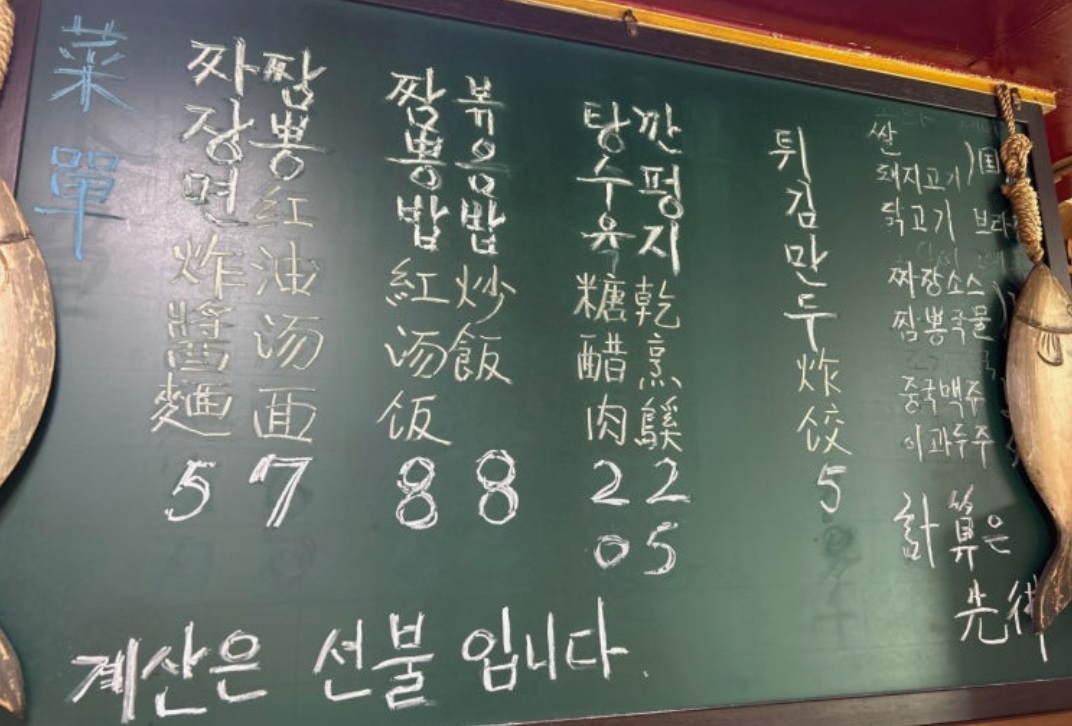 菜單
짜장면 炸醬麵 5
짬뽕 紅油汤面 7
짬뽕밥 紅汤饭 8
볶음밥 炒飯 8
탕수육 糖醋肉 20
깐펑지 乾烹鷄 25
튀김만두 炸餃 5
쌀
돼지고기 国
닭고기 브라
짜장소스
짬뽕국물
중국맥주
이과두주
計算은
先
계산은 선불 입니다.